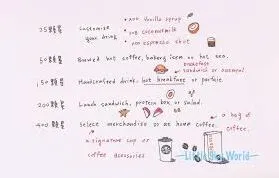 25顆星 Customize your drink
• ADD Vanilla syrup
• ADD coconutmilk
• ADD espresso shot
50顆星 Brewed hot coffee, bakery item or hot tea.
breakfast
sandwich or oatmeal
150顆星 Handcrafted drink, hot breakfast or parfait.
200顆星 Lunch sandwich, protein box or salad.
400顆星 Select merchandise or at-home coffee.
a bag of
coffee.
a signature cup or
coffee accessories
World